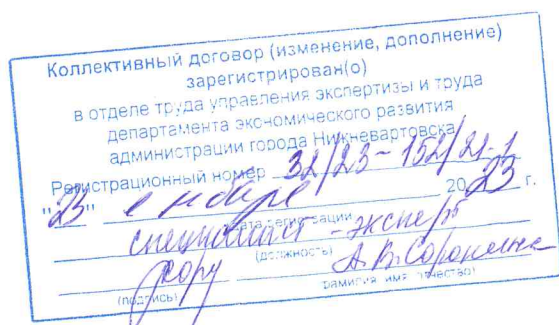 Коллективный договор (изменение, дополнение)
зарегистрирован(о)
в отделе труда управления экспертизы и труда
департамента экономического развития
администрации города Нижневартовска
Регистрационный номер 32/23-152/21-1
"23" января 2023 г.
дата регистрации
специалист-эксперт
(должность)
А.В.
(подпись) фамилия, имя, отчество)